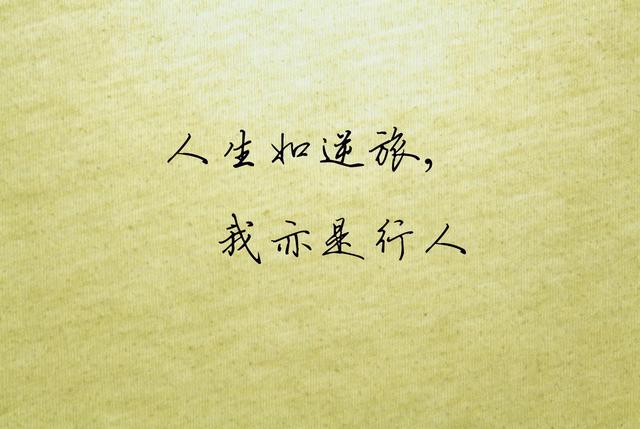 人生如逆旅，
我亦是行人